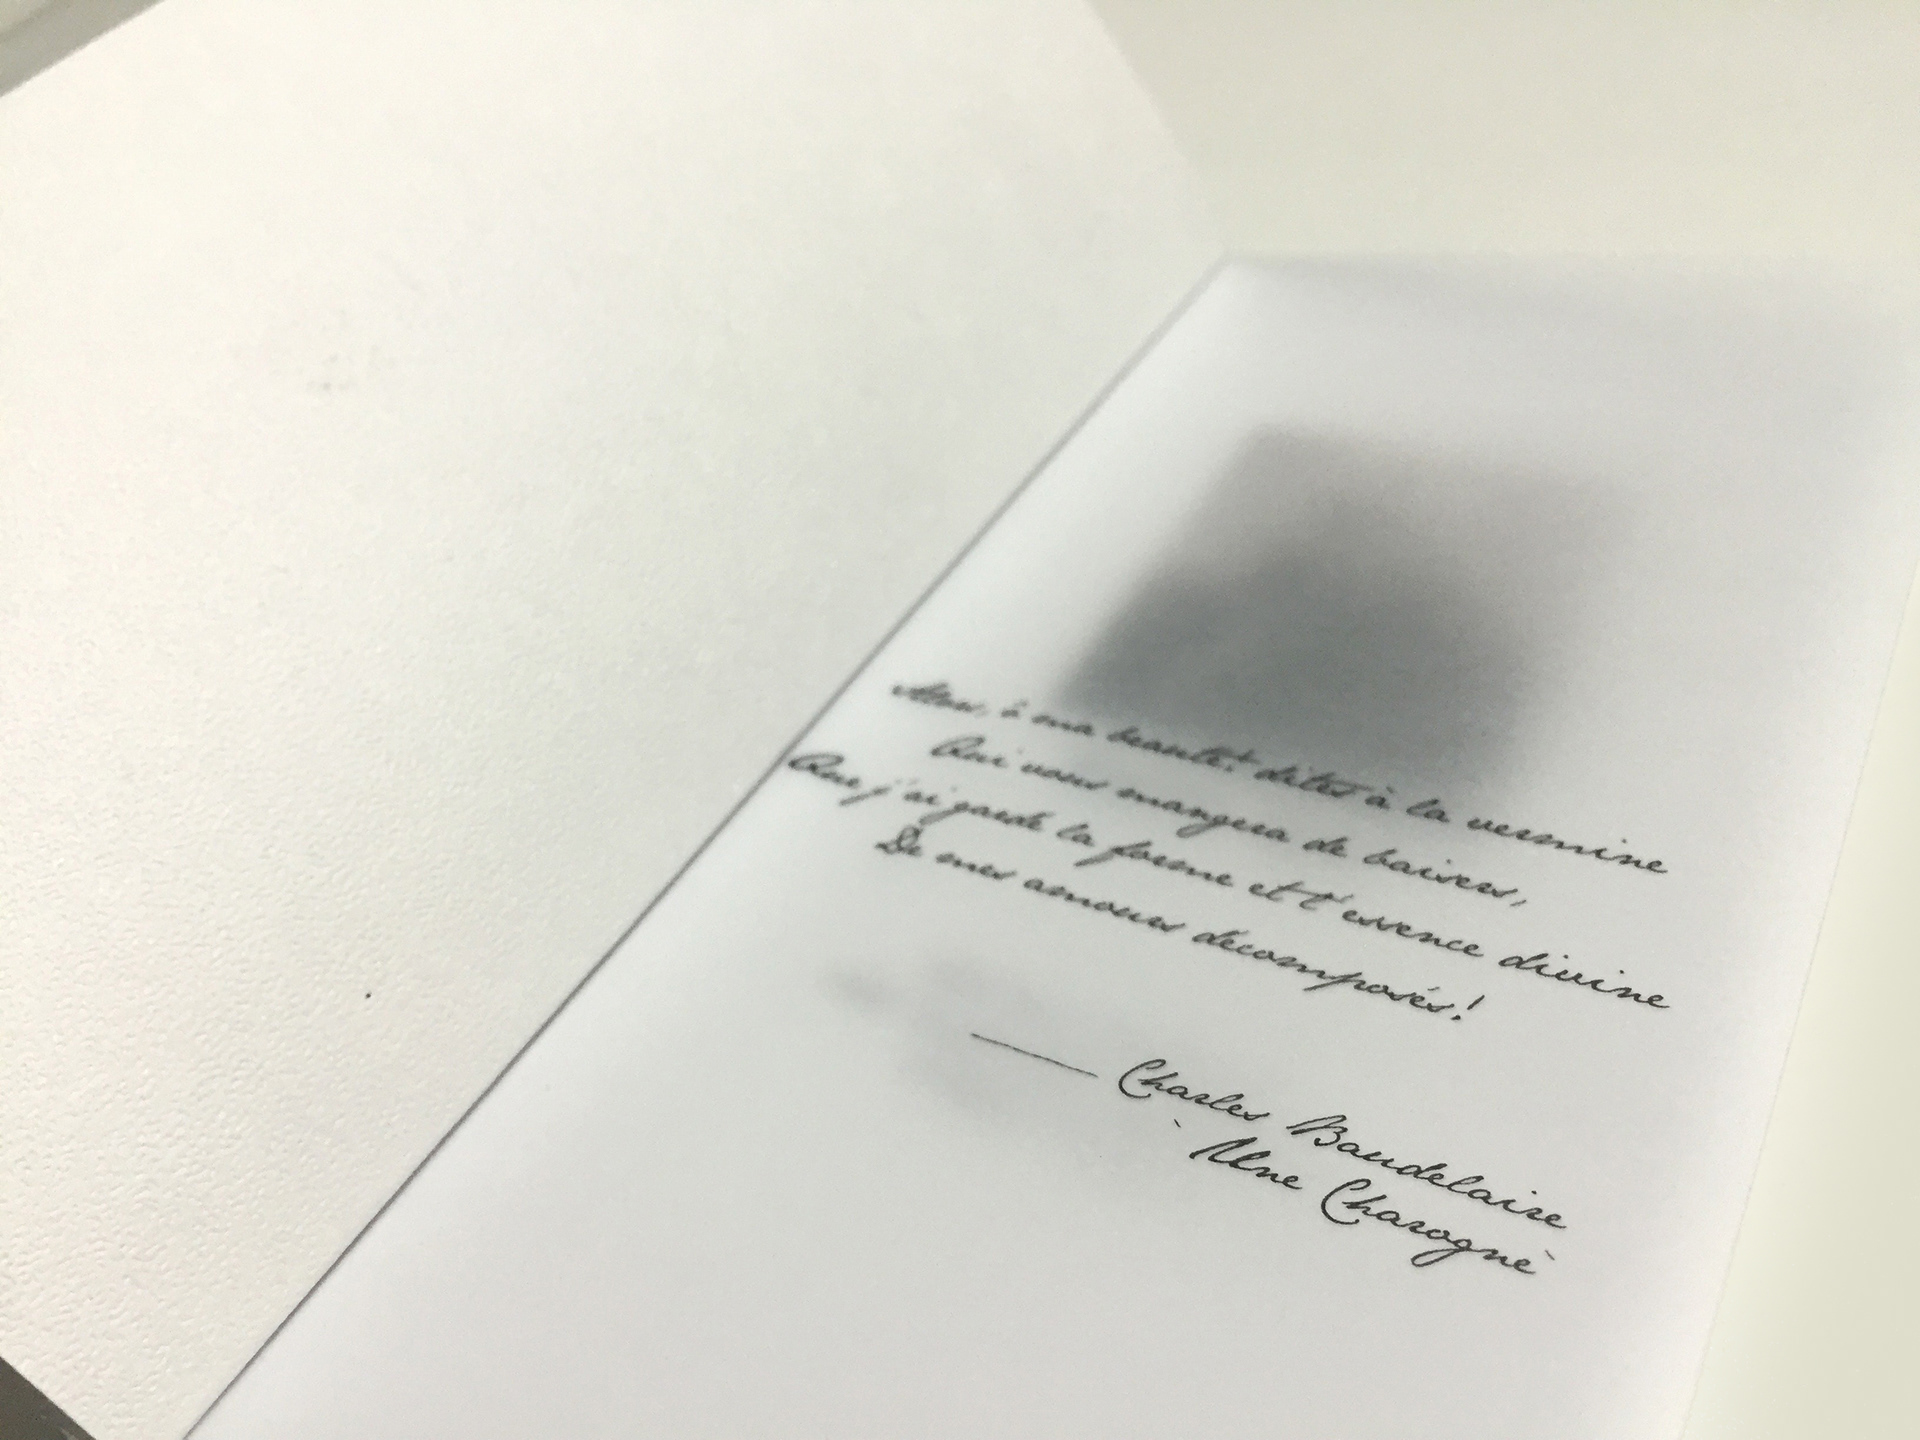 Alors, ô ma beauté! dites à la vermine
Qui vous mangera de baisers,
Que j'ai gardé la forme et l'essence divine
De mes amours décomposés!
— Charles Baudelaire
` Une Charogne`